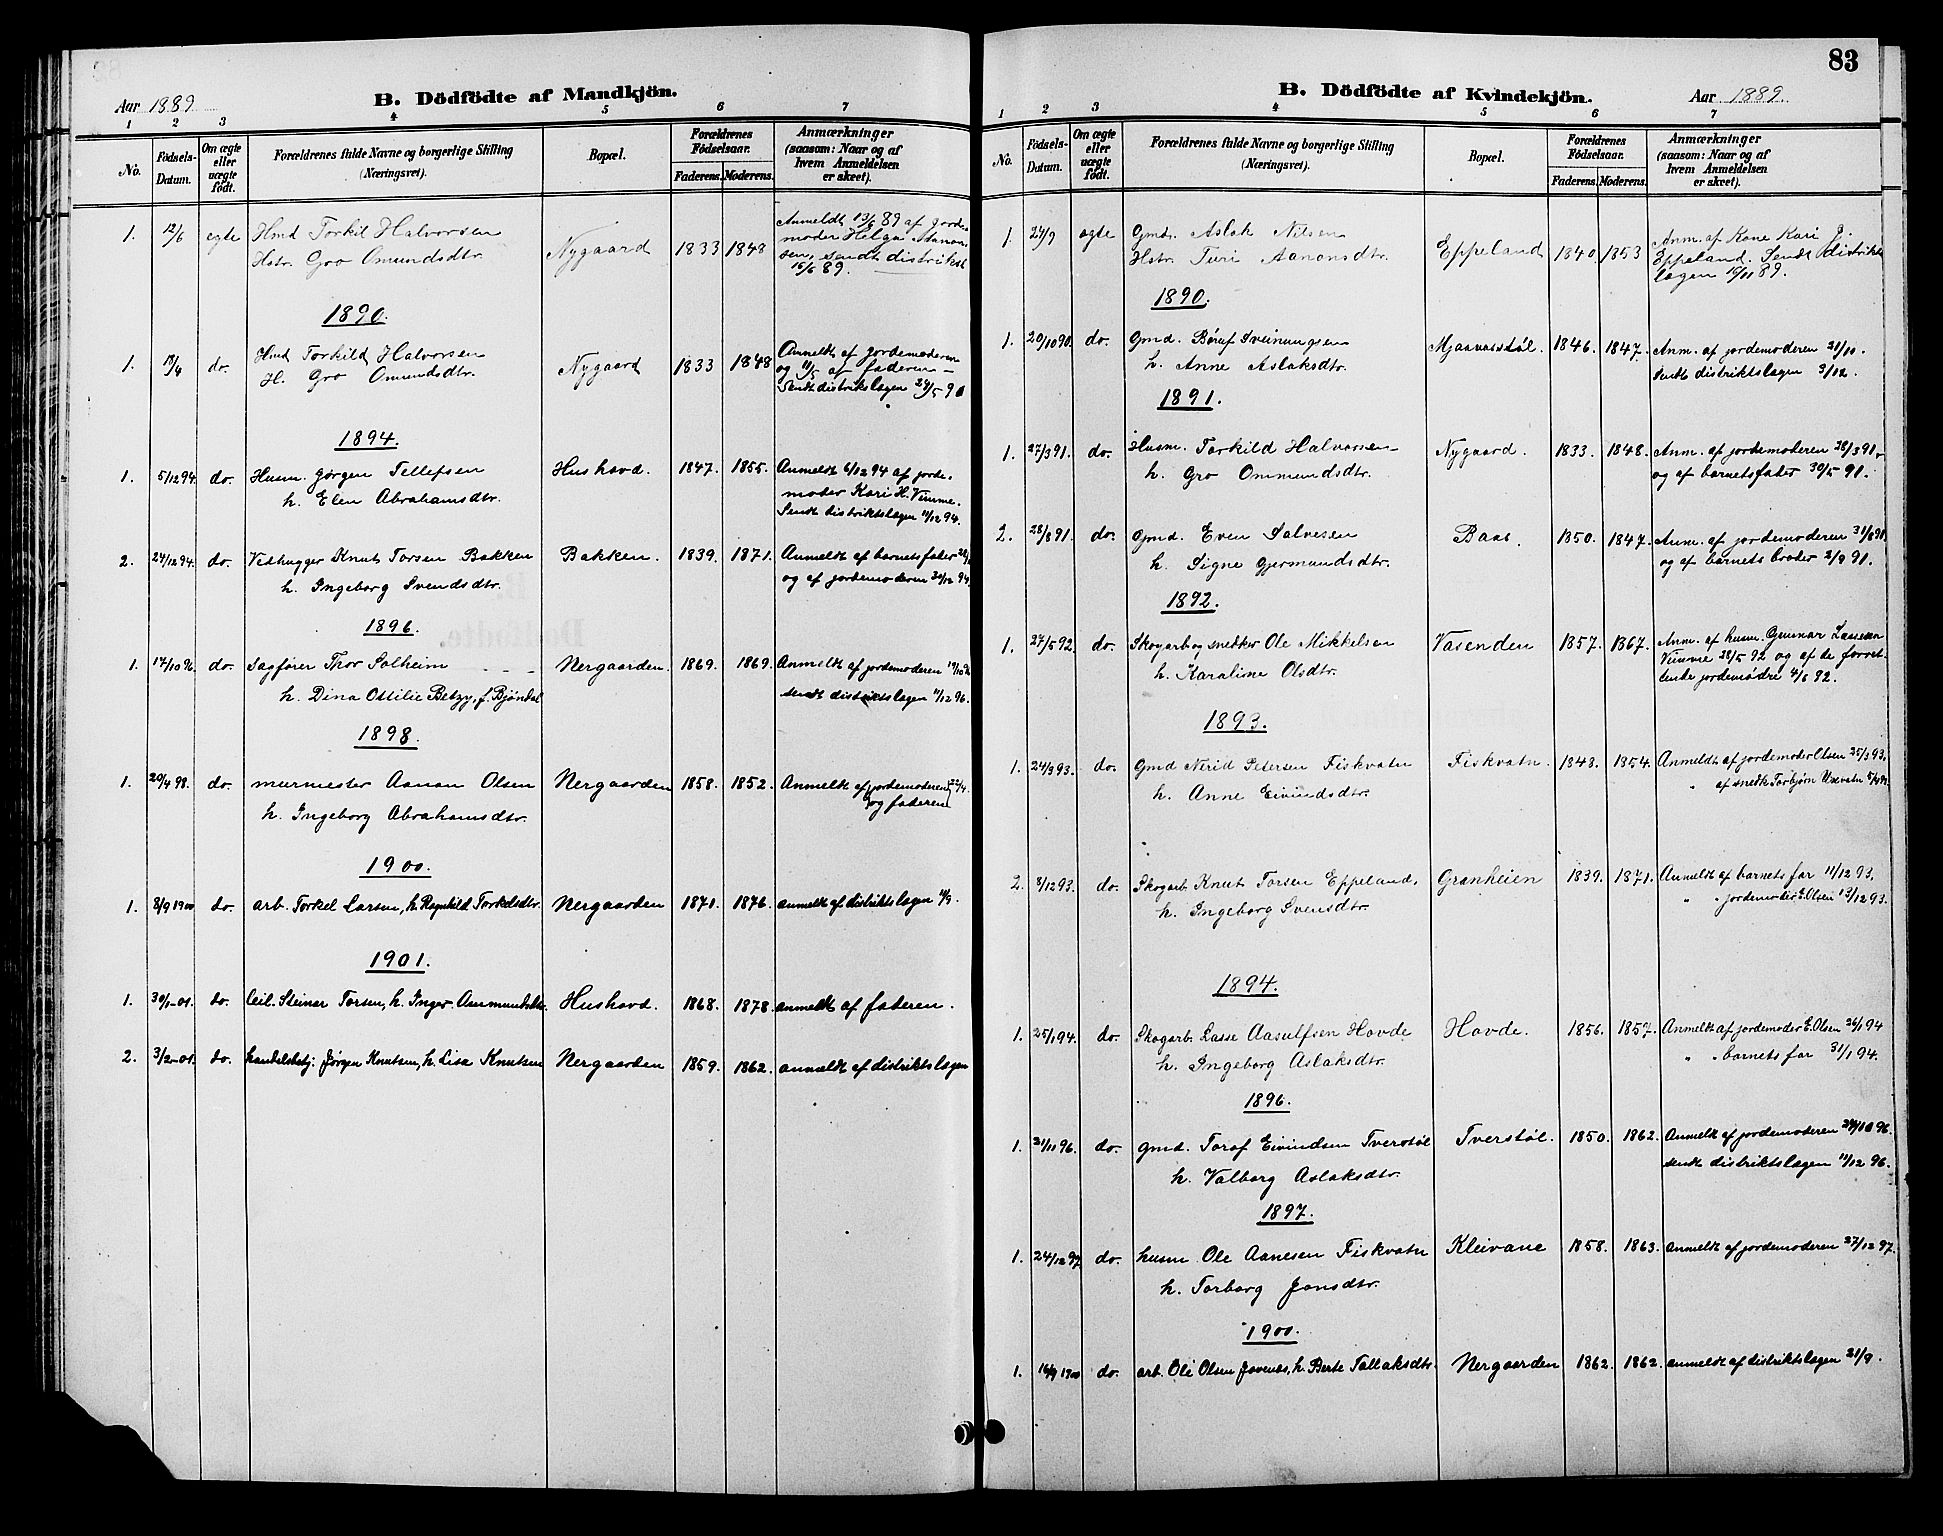 Aar 1889.
B. Dödfödte af Mandkjön.
1 2 3 4 5 6 7
No. Födsels-Datum. Om ægte eller uægte födt. Forældrenes fulde Navne og borgerlige Stilling (Næringsvei). Bopæl. Forældrenes Födselsaar. Faderens. Moderens. Anmærkninger (saasom: Naar og af hvem Anmeldelsen er skeet).
1. 12/6 egte Hmd Torkil Halvorsen Nygaard 1833 1848 Anmeldt 13/6 89 af jorde-
Hstr. Gro Omundsdtr. moder Helga Aanon-
sen, sendt distriktsl.
15/6 89.
1890.
1. do. Hmd Torkild Halvorsen Nygaard 1833 1848 Anmeldt af jordemoderen
H. Gro Omundsdtr. og 11/5 af faderen –
Sendt distriktslægen 24/5 90
1894.
1. 5/12 94. do. Husm. Jørgen Tellefsen Hushovd. 1847. 1855. Anmeldt 6/12 94 af jorde-
h. Elen Abrahamsdtr. moder Kari H. Vimme.
Sendt distriktslægen 11/12 94.
2. 24/12 94. do. Vedhugger Knut Torsen Bakken Bakken. 1839. 1871. Anmeldt af barnets fater
h. Ingeborg Svendsdtr. og af jordemoderen 30/12 94.
1896.
1. 17/10 96. do. Sagfører Thor Solheim Nergaarden. 1869. 1869. Anmeldt af jordemoderen
h. Dina Ottilie Betzy, f. Bjöndal sendt distriktslægen 11/12 96.
1898.
1. 20/4 98. do. murmester Aanon Olsen Nergaarden 1858. 1852. Anmeldt af jordemoderen 22/4.
h. Ingeborg Abrahamsdtr. og faderen
1900.
1. 8/9 1900 do. arb. Torkel Larsen, h. Ragnhild Torkelsdtr. Nergaarden 1871. 1876. anmeldt af distriktslægen
1901.
1. 30/1-01. do. leil. Steinar Torsen, h. Inger Aamundsdtr. Hushovd. 1868. 1878. anmeldt af faderen.
2. 3/2-01. do. handelsbetj. Jørgen Knutsen, h. Lisa Knutsen Nergaarden 1859. 1862. anmeldt af distriktslægen
83
B. Dödfödte af Kvindekjön.
Aar 1889.
1 2 3 4 5 6 7
No. Födsels-Datum. Om ægte eller uægte födt. Forældrenes fulde Navne og borgerlige Stilling (Næringsvei). Bopæl. Forældrenes Födselsaar. Faderens. Moderens. Anmærkninger (saasom: Naar og af hvem Anmeldelsen er skeet).
1. 24/9 ægte Gmd. Aslak Nilsen Eppeland 1840. 1853 Anm. af Kone Kari J.
Hstr. Turi Aanonsdtr. Eppeland. Sendt distrikts-
lægen 19/11 89.
1890.
1. 20/10 90. do. Gmd. Børuf Sveinungsen Mjaavasstøl. 1846. 1847. Anm. af jordemoderen 21/10.
h. Anne Aslaksdtr. Sendt distriktslægen 3/12.
1891.
1. 27/3 91. do. Husm. Torkild Halvorsen Nygaard. 1833. 1848. Anm. af jordemoderen 28/3 91.
h. Gro Ommundsdtr. og af barnets fater 30/5 91.
2. 28/8 91. do. Gmd. Even Salvesen Baas. 1850. 1847. Anm. af jordemoderen 31/8 91.
h. Signe Gjermundsdtr. og af barnets broder 2/9 91.
1892.
1. 27/5 92. do. Skogarb og snedker Ole Mikkelsen Vasenden 1857. 1867. Anm. af husm. Gunnar Lassesen
h. Karaline Olsdtr. Vimme 28/5 92 og af de forret-
tende jordemødre 4/6 92.
1893.
1. 24/3 93. do. Gmd Nerid Petersen Fiskvatn Fiskvatn. 1848. 1854. Anmeldt af jordemoder Olsen 25/3 93.
h. Anne Eivindsdtr. " af snedk Torbjørn Uxvatn
2. 8/12 93. do. Skogarb. Knut Torsen Eppeland, Granheien 1839. 1871. Anmeldt af barnets far 11/12 93.
h. Ingeborg Svensdtr. " " jordemoder E. Olsen 13/12 93.
1894.
1. 25/1 94. do. Skogarb. Lasse Aasulfsen Hovde Hovde. 1856. 1857. Anmeldt af jordemoder E. Olsen 26/1 94
h. Ingeborg Aslaksdtr. " " barnets far 31/1 94.
1896.
1. 21/11 96. do. gmd. Torof Eivindsen Tverstøl Tverstøl. 1850. 1862. Anmeldt af jordemoderen
h. Valborg Aslaksdtr. sendt distriktslægen 11/12 96.
1897.
1. 24/12 97 do. husm Ole Aanesen Fiskvatn Kleivane 1858. 1863. anmeldt af jordemoderen 27/12 97.
h. Torborg Jonsdtr.
1900.
1. 16/9 1900 do. arb. Ole Olsen Jovnes, h. Berte Tallaksdtr. Nergaarden 1862. 1862. anmeldt af distriktslægen 21/9.